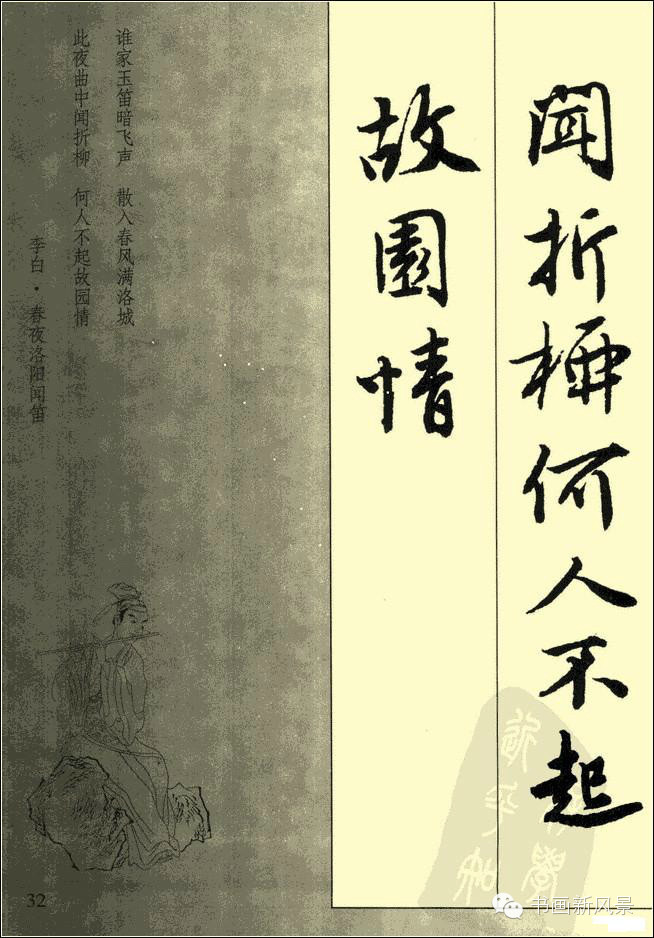 闻折柳何人不起
故園情
谁家玉笛暗飞声 散入春风满洛城
此夜曲中闻折柳 何人不起故园情
李白·春夜洛阳闻笛
32
书画新风景